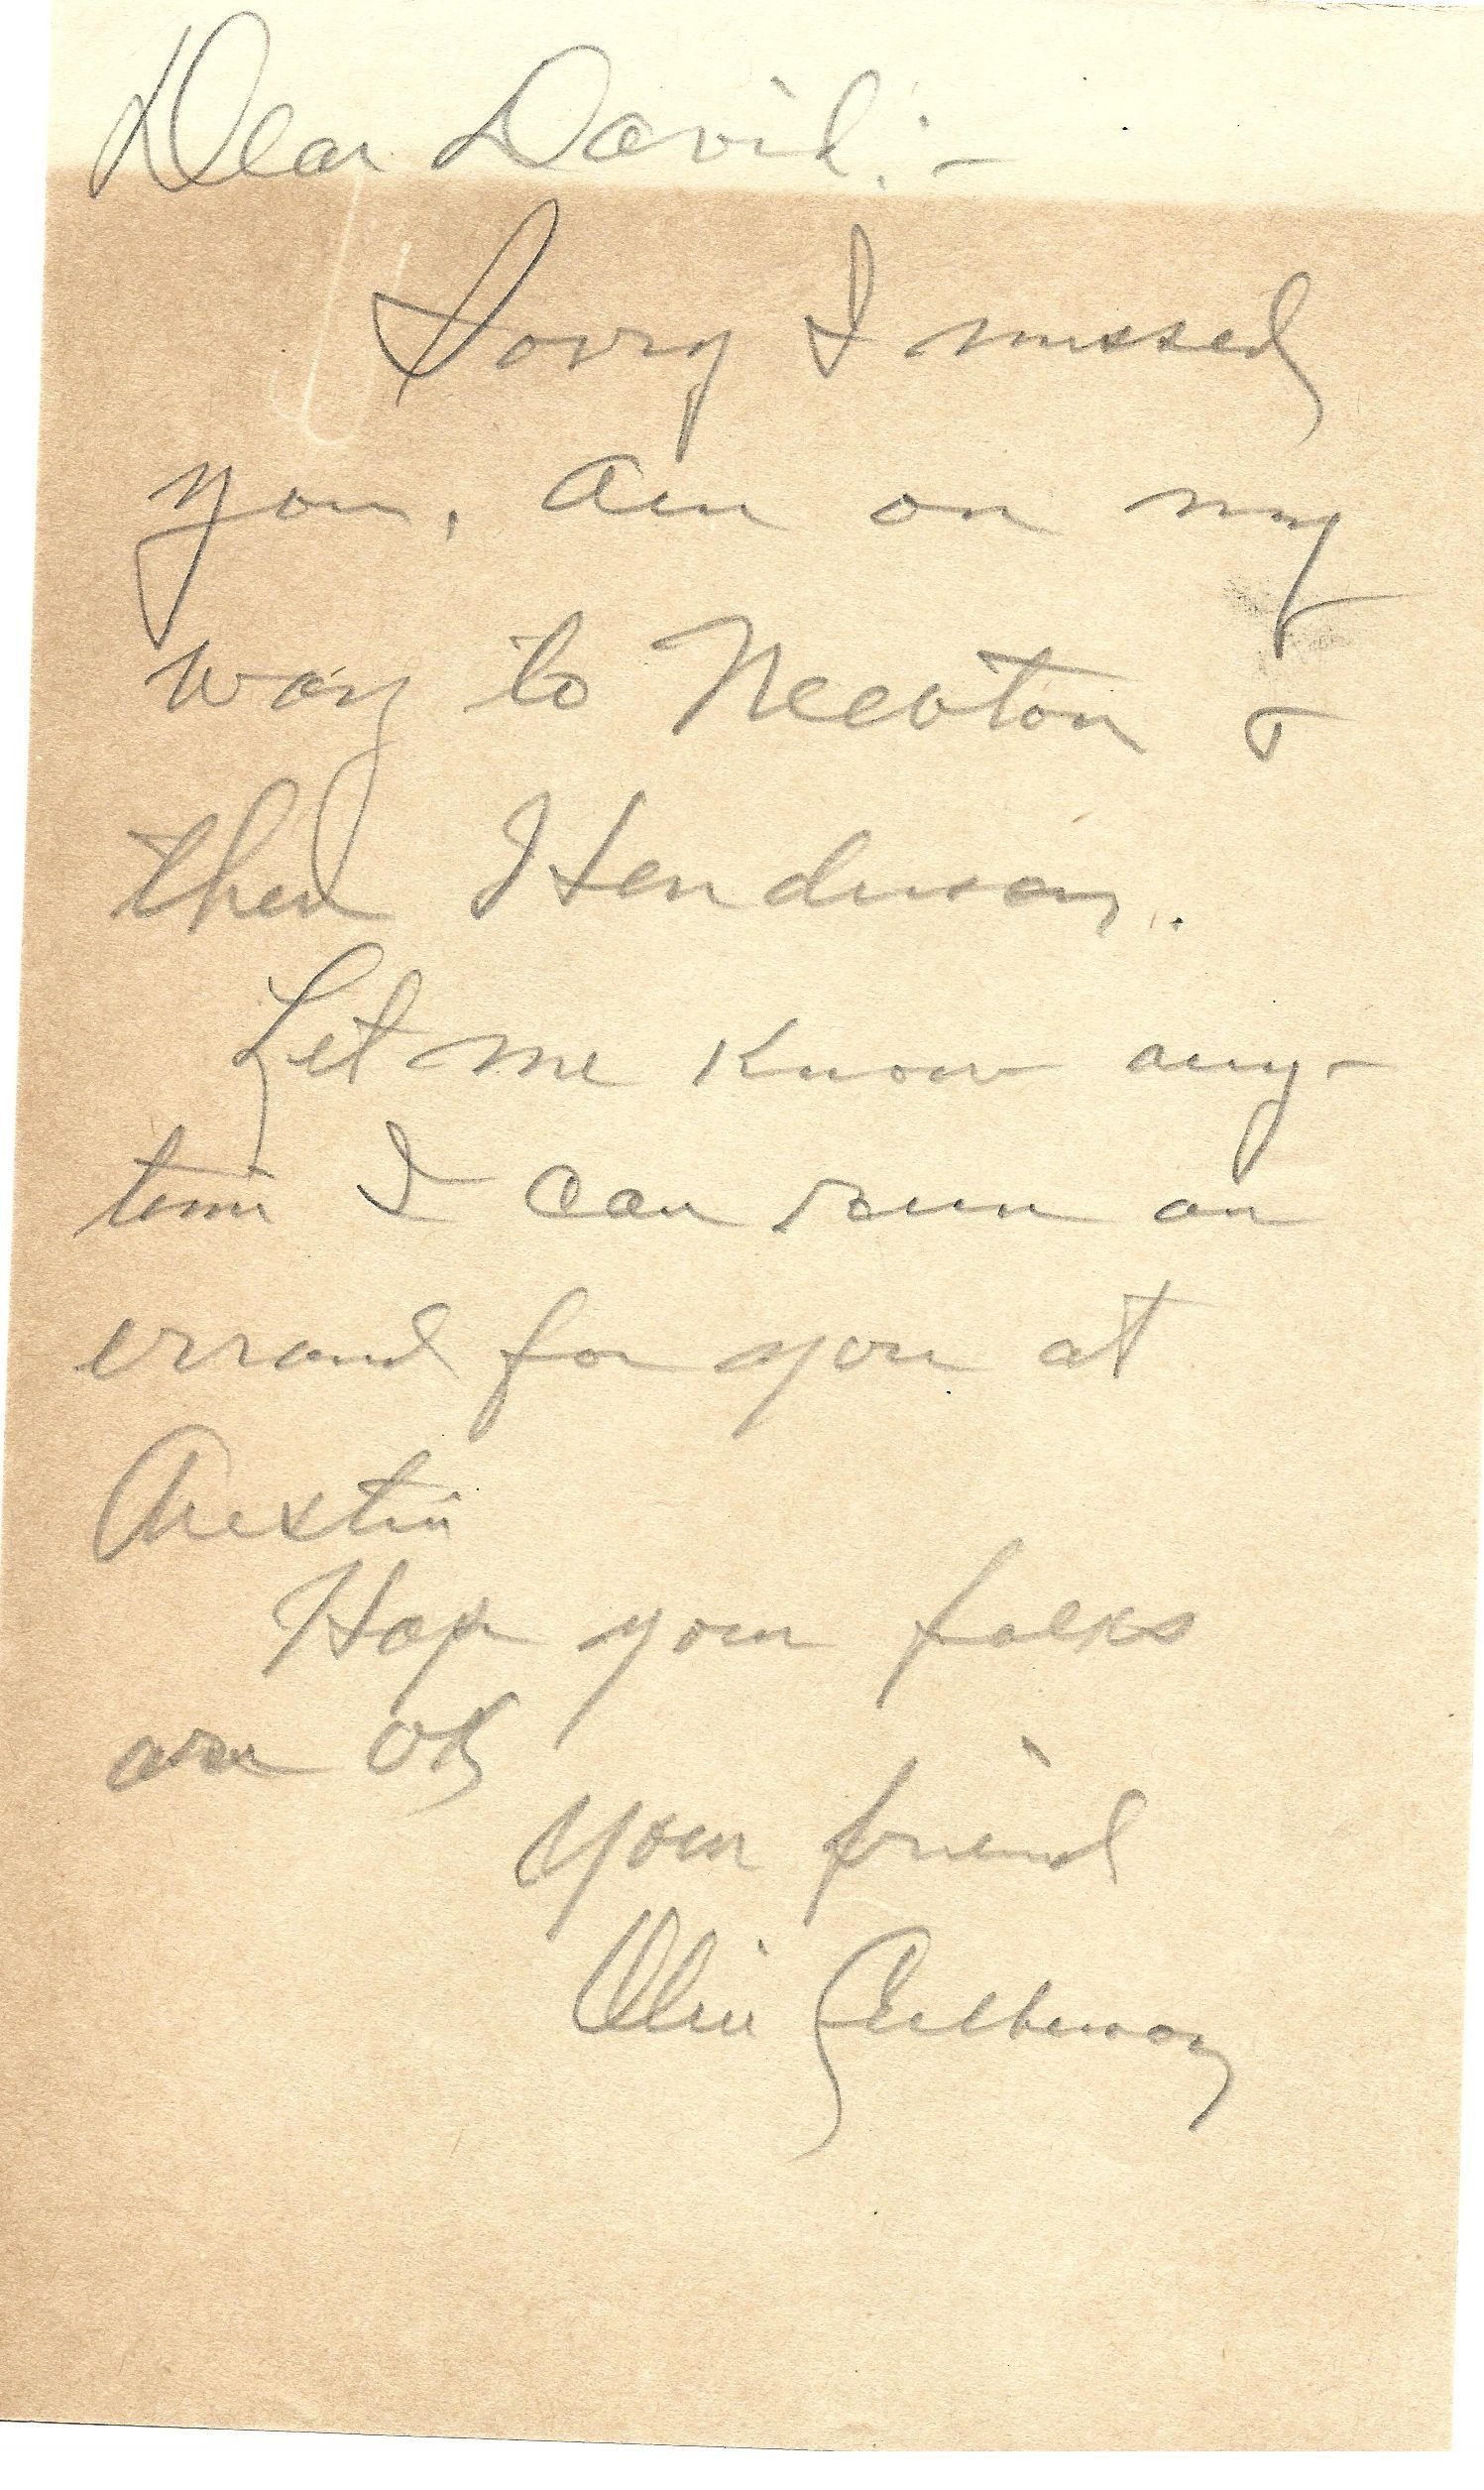 Dear David: -
Sorry I missed
you, am on my
way to Newton &
then Henderson.
Let me know any-
time I can run an
errand for you at
Austin
Hope your folks
are OK
Your friend
Olin Culberson